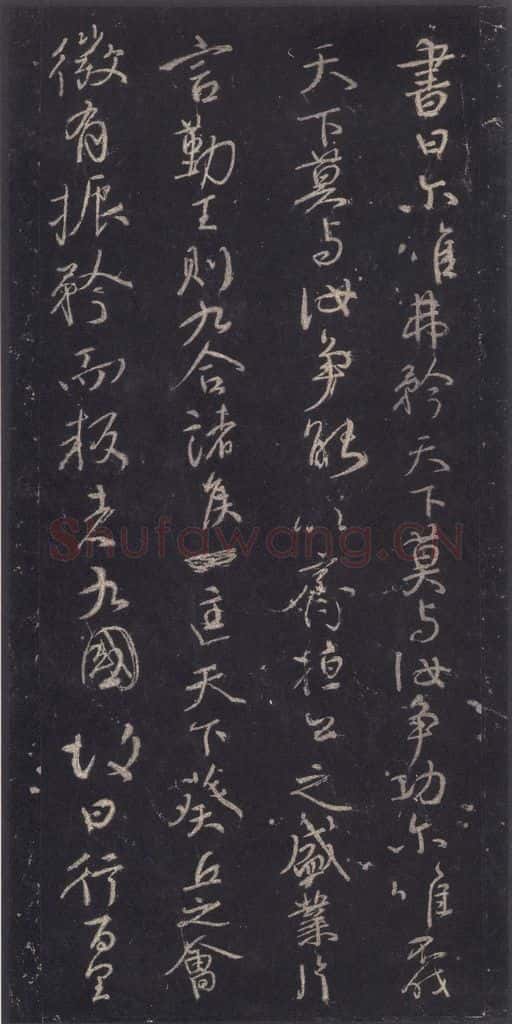 書曰尔唯弗矜天下莫与汝争功尔唯不伐
天下莫与汝争能以齊桓公之盛業片
言勤王則九合諸侯一匡天下葵丘之會
微有振矜而叛者九國故曰行百里
Shufawang.CN